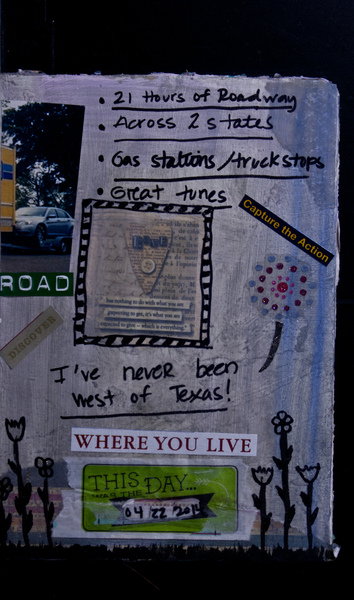 • 21 Hours of Roadway
• Across 2 states
• Gas stations/truckstops
• Great tunes
Capture the Action
LOVE
has nothing to do with what you are
expecting to get, it's what you are
expected to give — which is everything.
ROAD
DISCOVER
I've never been
west of Texas!
WHERE YOU LIVE
THIS DAY...
WAS THE
04 22 2012